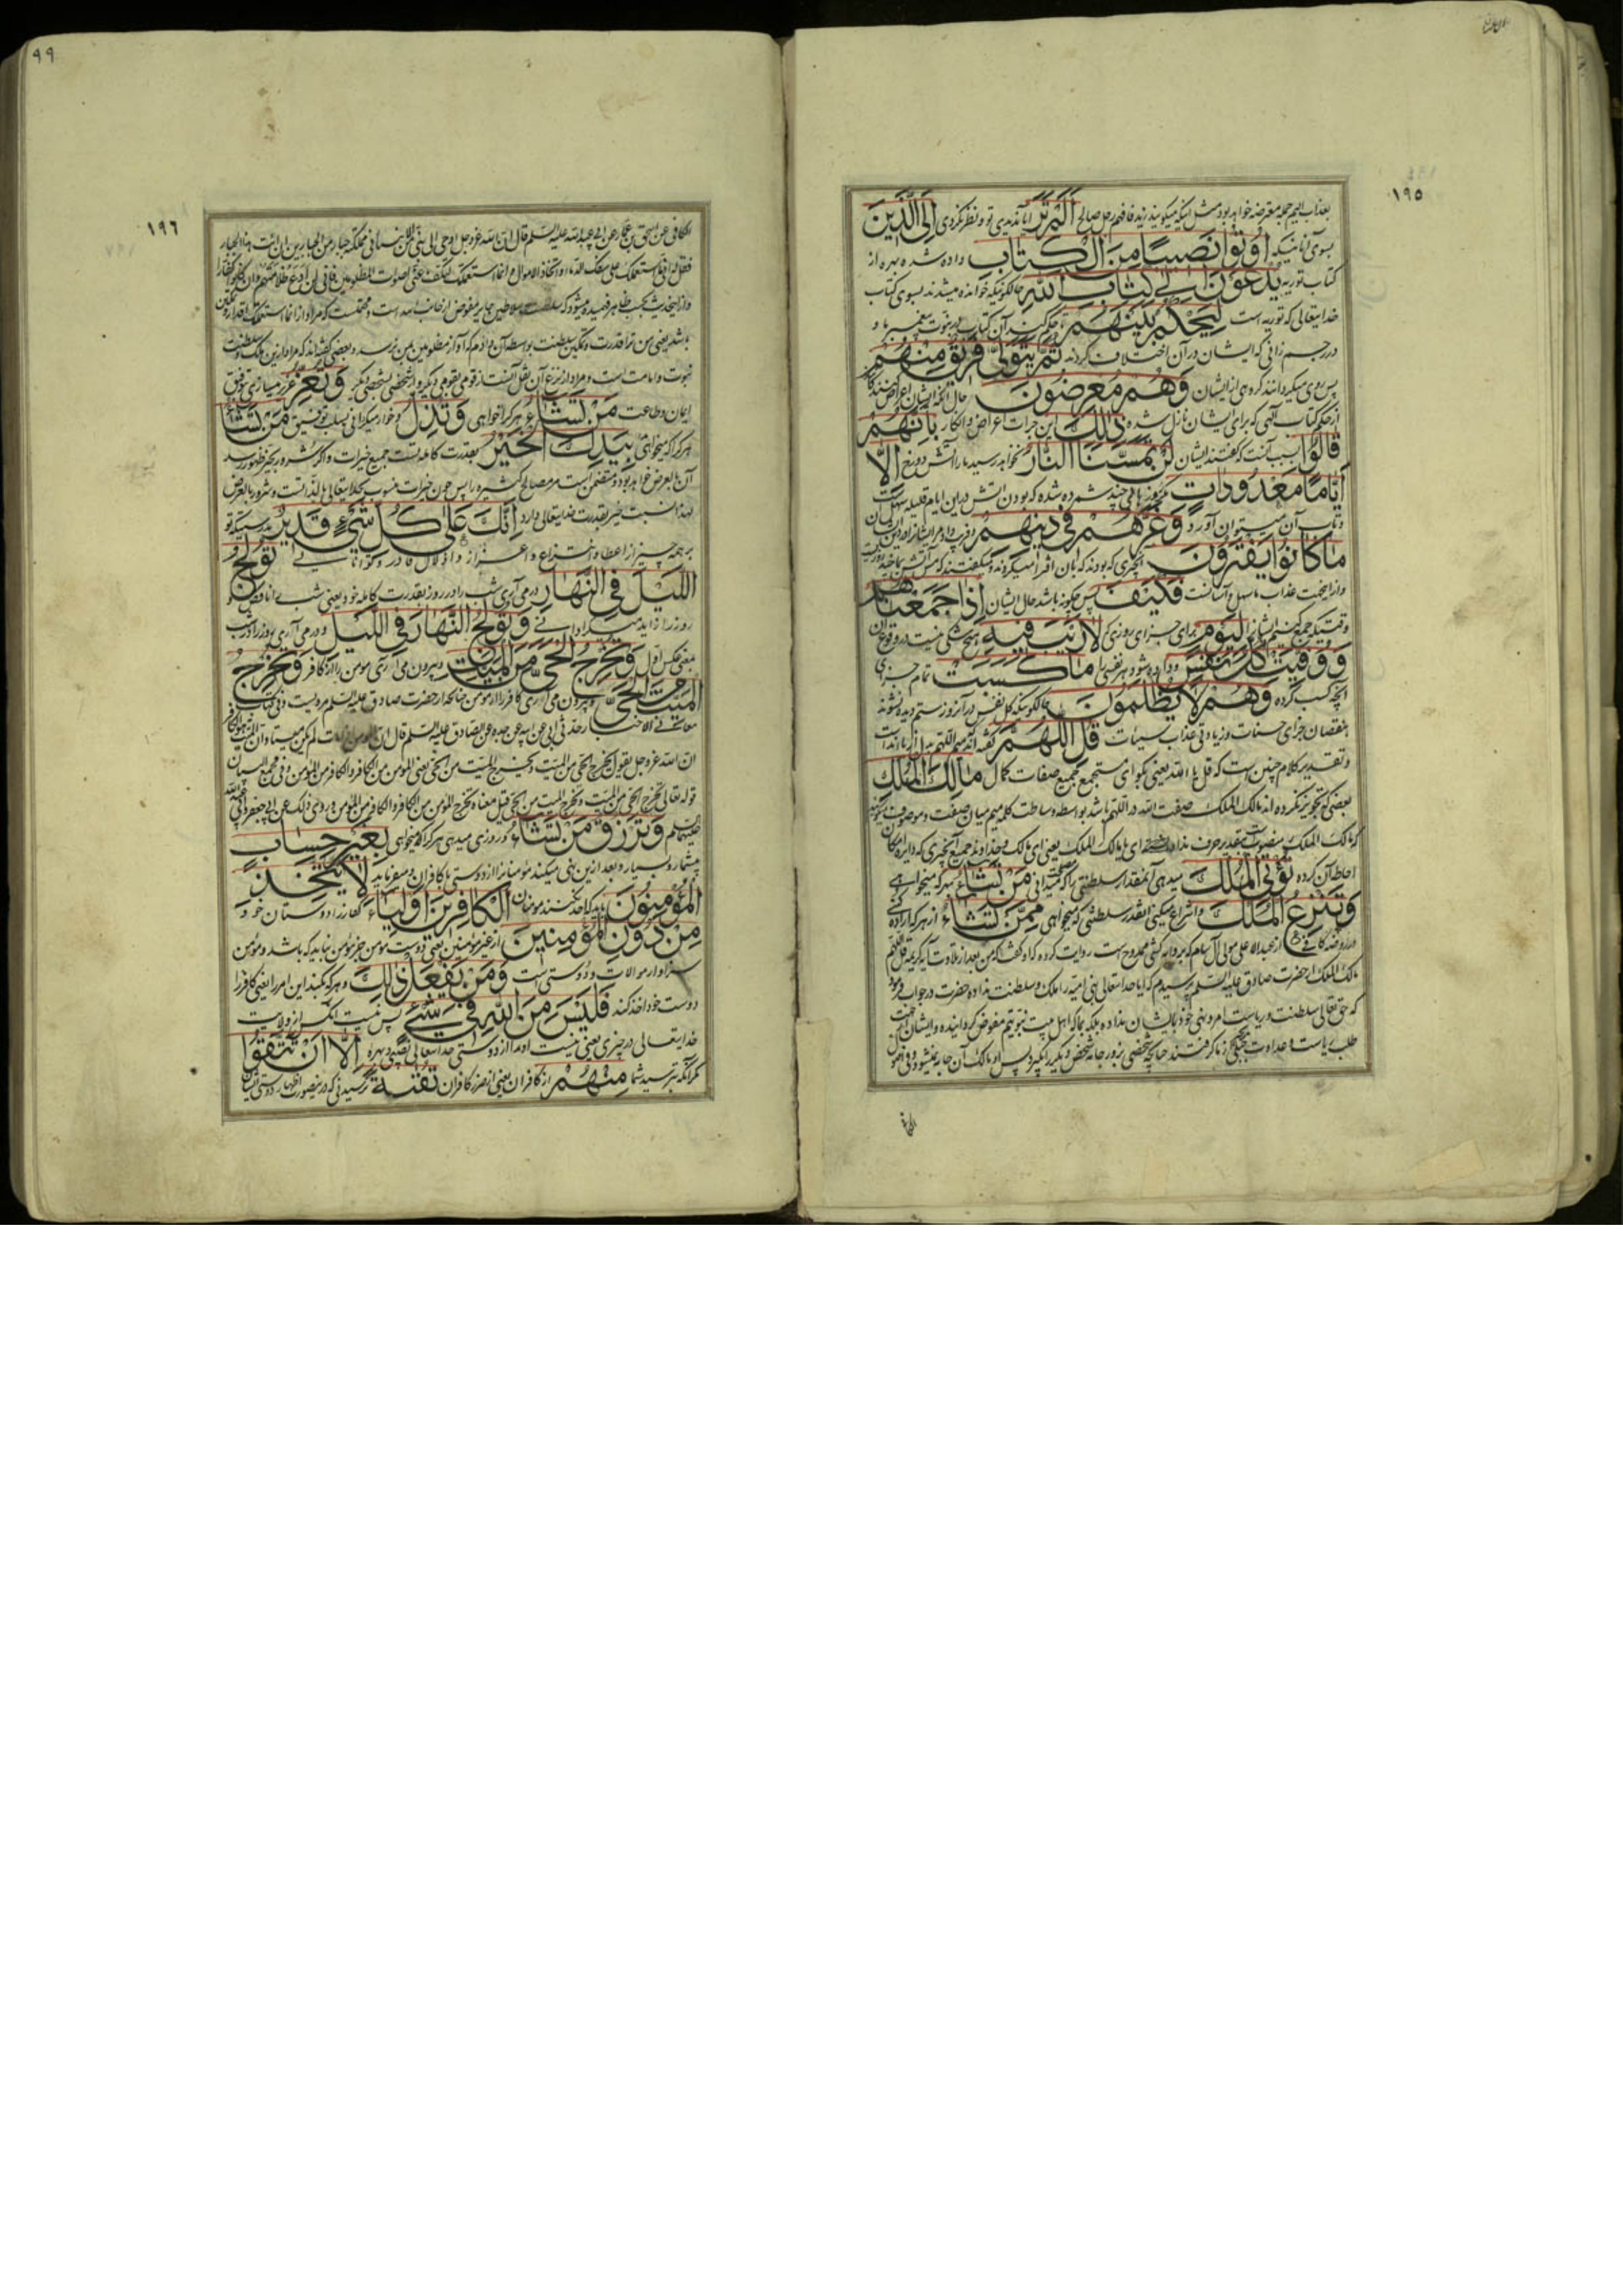 ١٩٥
بعذاب الیم جمله معترضه خواهد بود مثل اینکه میگویند زید فافهم رجل صالح أَلَمْ تَرَ آیا ندیدی تو و نظر نکردی إِلَى الَّذِينَ
بسوی آنانیکه أُوتُوا نَصِيبًا مِنَ الْكِتَابِ داده شده بهره از
کتاب توریه يُدْعَوْنَ إِلَىٰ كِتَابِ اللَّهِ حالکونیکه خوانده میشدند بسوی کتاب
خدایتعالی که توریه است لِيَحْكُمَ بَيْنَهُمْ تا حکم کند آن کتاب در نبوت پیغمبر ما و
در رجم زانی که ایشان در آن اختلاف کردند ثُمَّ يَتَوَلَّىٰ فَرِيقٌ مِنْهُمْ
پس روی میگردانند گروهی از ایشان وَهُمْ مُعْرِضُونَ حال آنکه ایشان اعراض کنندگانند
از حکم کتاب الهی که برای ایشان نازل شده ذَٰلِكَ این جرات اعراض و انکار بِأَنَّهُمْ
قَالُوا بسبب آنست که گفتند ایشان لَنْ تَمَسَّنَا النَّارُ نخواهد رسید ما را آتش دوزخ إِلَّا
أَيَّامًا مَعْدُودَاتٍ مگر روزهای چند شمرده شده که بودن آتش در این ایام قلیله سهل است
و تاب آن میتوان آورد وَغَرَّهُمْ فِي دِينِهِمْ و فریب داد مر ایشانرا در دین ایشان
مَا كَانُوا يَفْتَرُونَ آنچیزی که بودند که بآن افترا میکردند و میگفتند که مس آتش بما چند روز است
و از اینجهت عذاب ما سهل و آسانست فَكَيْفَ پس چگونه باشد حال ایشان إِذَا جَمَعْنَاهُمْ
وقتیکه جمع کنیم ایشانرا لِيَوْمٍ برای جزای روزی که لَا رَيْبَ فِيهِ هیچ شکی نیست در وقوع آن
وَوُفِّيَتْ كُلُّ نَفْسٍ و داده شود هر نفسی را مَا كَسَبَتْ تمام جزای
آنچه کسب کرده وَهُمْ لَا يُظْلَمُونَ حالکونیکه کل نفس در آنروز ستم دیده نشوند
بنقصان جزای حسنات و زیادتی عذاب سیئات قُلِ اللَّهُمَّ گفته اند میم اللهم بدل از یا ندا است
و تقدیر کلام چنین است که قل یا الله یعنی بگو ای مستجمع جمیع صفات کمال مَالِكَ الْمُلْكِ
بعضی که تجویز نکرده اند مالک الملک صفت الله در اللهم باشد بواسطه وساطت کلمه میم میان صفت و موصوف میگویند
که مالک الملک منصوب بتقدیر حرف نداست ای یا مالک الملک یعنی ای مالک و خداوند جمیع آنچیزی که دایره امکان
احاطه آن کرده تُؤْتِي الْمُلْكَ میدهی آنمقدار سلطنتی را که میدانی مَنْ تَشَاءُ بهر که میخواهی
وَتَنْزِعُ الْمُلْكَ و انتزاع میکنی آنقدر سلطنتی که میخواهی مِمَّنْ تَشَاءُ از هر که اراده کنی
در روضه کافی از عبدالاعلی مولی آل سام که بروایه کشی ممدوح است روایت کرده که او گفت که من بعد از تلاوت آیه کریمه قل اللهم
مالک الملک از حضرت صادق علیه السلم پرسیدم که آیا خدایتعالی بنی امیه را ملک و سلطنت نداده حضرت در جواب فرمود
که حق تعالی سلطنت و ریاست امر دینی خود بایشان نداده بلکه بما که اهل بیت نبوتیم مفوض گردانیده و ایشان از جهت
طلب ریاست و عداوت بجنگی از ما گرفتند چنانچه شخصی بزور جامه شخص دیگر را بگیرد پس او مالک آن جامه نمیشود و فی اصول
٩٩
١٩٦
الکافی عن اسحق بن عمار عن ابی عبدالله علیه السلم قال ان الله عز وجل اوحی الی نبی من انبیائه فی مملکة جبار من الجبارین ان ائت هذا الجبار
فقل له انی لم استعملک علی سفک الدماء و اتخاذ الاموال و انما استعملتک لتکف عنی اصوات المظلومین فانی لن ادع ظلامتهم و ان کانوا کفارا
و از اینحدیث بحسب ظاهر فهمیده میشود که سلطنت سلاطین جابر مفوض از جانب الله است و محتملست که مراد از انما استعملتک اقدار و تمکین
باشد یعنی من ترا قدرت و تمکین سلطنت بواسطه آن دادم که آواز مظلومین بمن نرسد و بعضی گفته اند که مراد ازین ملک و سلطنت
نبوت و امامت است و مراد از نزع آن نقل آنست از قومی بقومی دیگر و از شخصی بشخصی دیگر وَتُعِزُّ و عزیز میسازی بتوفیق
ایمان و طاعت مَنْ تَشَاءُ هر که را خواهی وَتُذِلُّ و خوار میگردانی بسلب توفیق مَنْ تَشَاءُ
هر که را که میخواهی بِيَدِكَ الْخَيْرُ بقدرت کامله تست جمیع خیرات و اگر شرور بحیز ظهور رسد
آن بالعرض خواهد بود و متضمن است مر مصالح کثیره را پس چون خیرات منسوب بخدایتعالی بالذاتست و شرور بالعرض
لهذا نسبت خیر بقدرت خدایتعالی دارد إِنَّكَ عَلَىٰ كُلِّ شَيْءٍ قَدِيرٌ بدرستیکه تو
بر همه چیز از اعطا و انتزاع و اعزاز و اذلال قادر و توانائی تُولِجُ
اللَّيْلَ فِي النَّهَارِ در می آری شب را در روز بقدرت کامله خود یعنی شب را ناقص و
روز را زاید میگردانی وَتُولِجُ النَّهَارَ فِي اللَّيْلِ و در می آری روز را در شب
بمعنی عکس اول وَتُخْرِجُ الْحَيَّ مِنَ الْمَيِّتِ و بیرون می آری مومن را از کافر وَتُخْرِجُ
الْمَيِّتَ مِنَ الْحَيِّ و بیرون می آری کافر را از مومن چنانچه از حضرت صادق علیه السلم مرویست و فی کتاب
معانی الاخبار حدثنی ابی عن ابیه عن جده عن الصادق علیه السلم قال ان المومن اذا مات لم یکن میتا و ان المیت هو الکافر
ان الله عز وجل یقول یخرج الحی من المیت و یخرج المیت من الحی یعنی المؤمن من الکافر و الکافر من المؤمن و فی مجمع البیان
قوله تعالی تخرج الحی من المیت و تخرج المیت من الحی قیل معناه تخرج المؤمن من الکافر و الکافر من المؤمن و روی ذلک عن ابی جعفر و ابی عبدالله
علیهما السلم وَتَرْزُقُ مَنْ تَشَاءُ و روزی میدهی هر که را که میخواهی بِغَيْرِ حِسَابٍ
بیشمار و بسیار و بعد ازین نهی میکند مؤمنانرا از دوستی با کافران و میفرماید لَا يَتَّخِذِ
الْمُؤْمِنُونَ باید که اخذ نکنند مومنان الْكَافِرِينَ أَوْلِيَاءَ کفار را دوستان خود
مِنْ دُونِ الْمُؤْمِنِينَ از غیر مؤمنین یعنی دوست مومن جز مؤمن نباید که باشد و مؤمن
سزاوار موالات و دوستی است وَمَنْ يَفْعَلْ ذَٰلِكَ و هر که بکند این امر را یعنی کافر را
دوست خود اخذ کند فَلَيْسَ مِنَ اللَّهِ فِي شَيْءٍ پس نیست آنکس از ولایت
خدایتعالی در چیزی یعنی نیست او را از دوستی خدایتعالی نصیبی و بهره إِلَّا أَنْ تَتَّقُوا
مگر آنکه بترسید شما مِنْهُمْ از کافران یعنی از ضرر کافران تُقَاةً ترسیدنی که در ینصورت اظهار دوستی ایشان